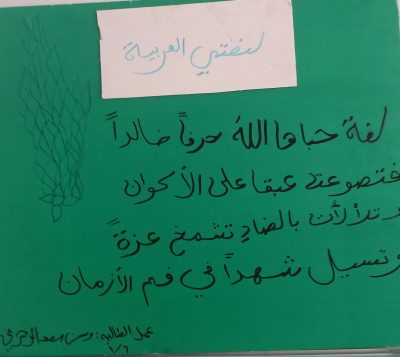 لغتي العربية
لغة حباها اللهُ حرفاً خالداً
فتضوعت عبقا على الأكوان
وتلألأت بالضادِ تشمخ عزةً
وتسيل شهداً في فم الأزمان
عمل الطالبة:
١/٦